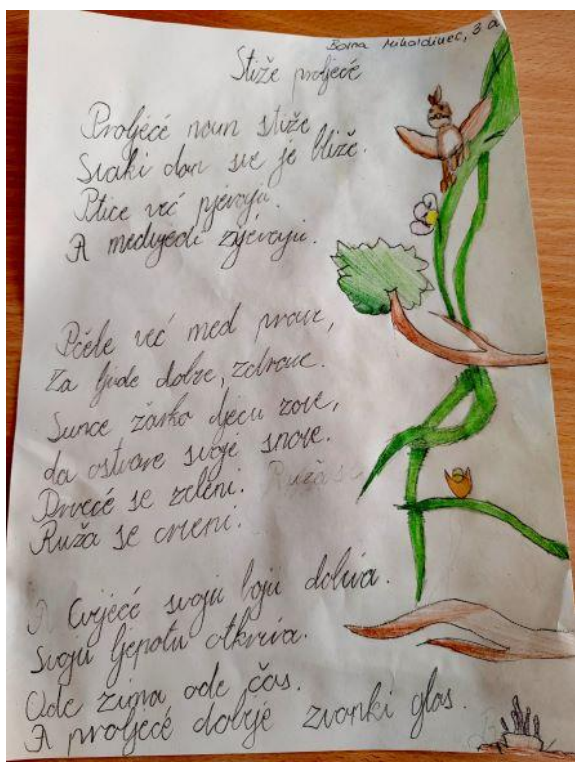 Borna Mikoldinec, 3 a
Stiže proljeće
Proljeće nam stiže
Svaki dan sve je bliže.
Ptice već pjevaju.
A medvjedi zijevaju.
Pčele već med prave,
Za ljude dobre, zdrave.
Sunce žarko djecu zove,
da ostvare svoje snove.
Drveće se zeleni. Ruža se
Ruža se crveni.
Cvijeće svoju boju dobiva.
Svoju ljepotu otkriva.
Ode zima ode čas.
A proljeće dobije zvonki glas.